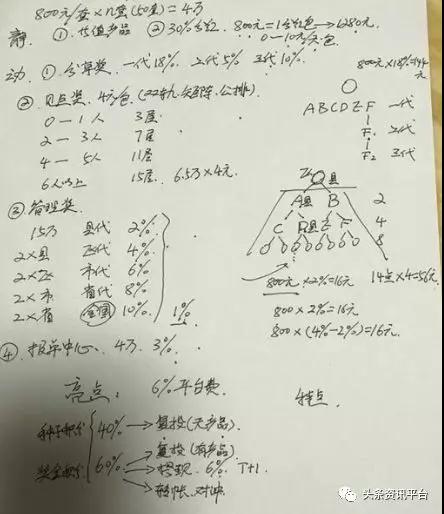 800元/套×n套(50套)=4万
静. ①.等值产品 ②30%分红. 800元=1分红包→1280元.
0—10元/天/包
动. ①.分享奖. 一代18%. 二代5% 三代10%.
800元×18%=144元
②.见点奖. 4元/包.(22轨.矩阵.公排).
0—1人 3层
2—3人 7层
4—5人 11层
6人以上 15层. 6.5万×4元.
A B C D Z F 一代
F1 二代
F2 三代
县
A县 B 2
C 4
8
③.管理奖.
15万 县代 2%
2×县 区代 4%
2×区 市代 6%
2×市 省代 8%
2×省 全国 10%
1%
800元×2%=16元 14点×4=56元
800×2%=16元
800×(4%-2%)=16元
④.报单中心. 4万. 3%.
亮点: 6%平台费. 特点.
种子积分 40%→复投(无产品)
奖金积分 60%→复投(有产品)
→提现. 6%. T+1
→转帐.对冲.
头条资讯平台